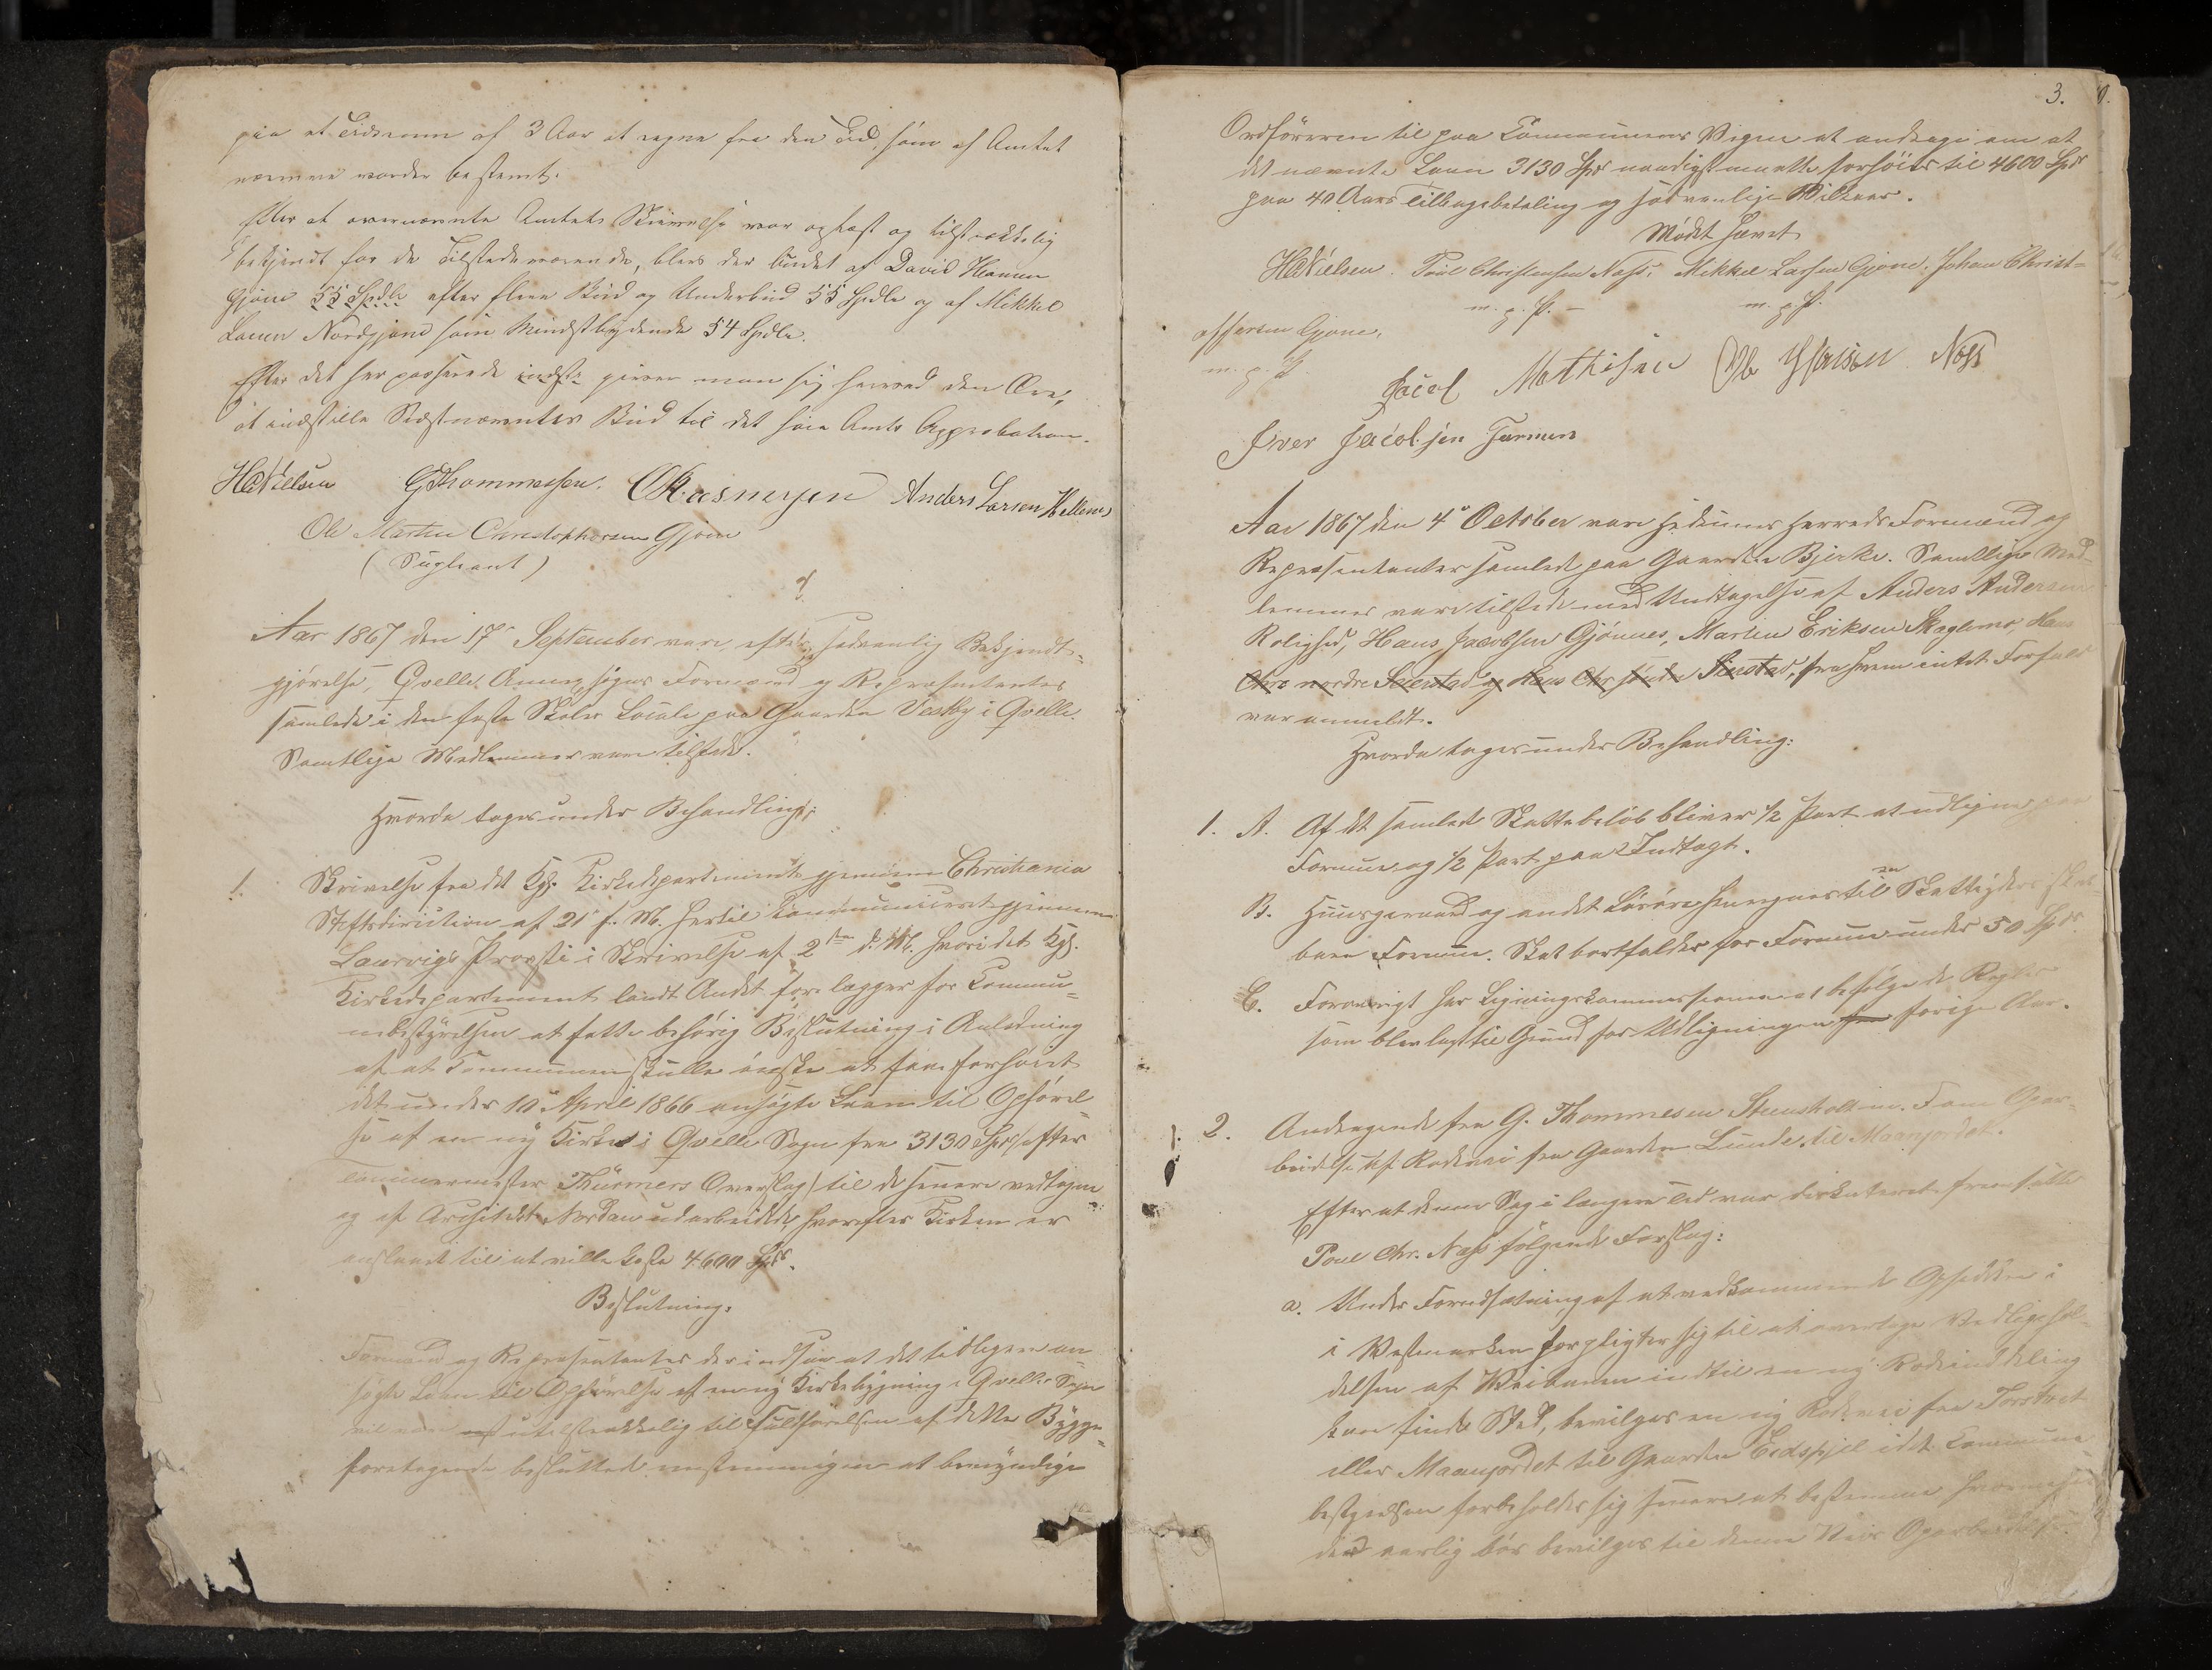 paa et Tidsrum af 3 Aar at regne fra den Tid, som af Amtet
nærmere vorder bestemt.
Efter at overnævnte Amtets Skrivelse var oplæst og tilstrækkelig
bekjendt for de Tilstedeværende, blev der budet af David Hansen
Gjone 55 Spdlr efter flere Bud og Underbud 55 Spdlr og af Mikkel
Larsen Nordgjone som Mindstbydende 54 Spdlr.
Efter det her passerede giver man sig herved den Ære,
at indstille Sidstnævntes Bud til det høie Amts Approbation.
HCNielsen GThommesen. Anders Larsen Hellenes
Ole Martin Christophersen Gjone
(Supleant)
Aar 1867 den 17de September vare, efter sædvanlig Bekjendt-
gjørelse, Qvelle Annexsogns Formænd og Repræsentanter
samlede i den faste Skoles Locale paa Gaarden Vestby i Qvelle.
Samtlige Medlemmer vare tilstede.
Hvorda toges under Behandling:
1. Skrivelse fra det Kgl. Kirkedepartement gjennem Christiania
Stiftsdirection af 21de f. M. hertil kommuniceret gjennem
Laurvigs Provsti i Skrivelse af 2den d. M. hvori det Kgl.
Kirkedepartement blandt Andet forelægger for Commu-
nebestyrelsen at fatte behørig Beslutning i Anledning
af at Kommunen skulle ønske at faae forhøiet
det under 10de April 1866 ansøgte Laan til Opførel-
se af en ny Kirke i Qvelle Sogn fra 3130 Spd (efter
Tømmermester Thürmers Overslag) til de senere vedtagne
og af Architekt Nordan udarbeidede, hvorefter Kirken er
anslaaet til at ville koste 4600 Spd.
Beslutning:
Formænd og Repræsentanter der indsaa at det tidligere an-
søgte Laan til Opførelse af en ny Kirkebygning i Qvelle Sogn
vil være utilstrækkelig til Fuldførelsen af dette Bygge-
foretagende besluttede enstemmigen at bemyndige
3.
Ordføreren til paa Communens Vegne at andrage om at
det nævnte Laan 3130 Spd naadigst maatte forhøies til 4600 Spd
paa 40 Aars Tilbagebetaling og sædvanlige Vilkaar.
Mødet hævet
HCNielsen. Poul Christensen Næss, Mikkel Larsen Gjone, Johan Christ-
m. p. P. - m. p. P.
offersen Gjone,
m. p. P. Jacob Mathisen Næss
Iver Jacobsen
Aar 1867 den 4de October vare Hedrums Herreds Formænd og
Repræsentanter samlede paa Gaarden Bjerke. Samtlige Med-
lemmer vare tilstede med Undtagelse af Anders Andersen
Rolighed, Hans Jacobsen Gjønnes, Martin Eriksen Skaglemo, Hans
Chrs nordre Seierstad og Hans Chr søndre Seierstad, fra hvem intet Forfald
var anmeldt.
Hvorda toges under Behandling:
1. A. Af det samlede Skattebeløb bliver 1/2 Part at udligne paa
Formue og 1/2 Part paa Indtægt.
B. Huusgeraad og andet Løsøre henregnes til en Skattyders skat-
bare Formue. Skat bortfalder for Formue under 50 Spd.
C. Forøvrigt har Ligningskommissionen at befølge de Regler
som blev lagt til Grund for Udligningen forrige Aar.
2. Andragende fra G. Thommesen Steensholt m. Fl. om Opar-
beidelse af Rodevei fra Gaarden Lunde til Maanejordet.
Efter at denne Sag i længere Tid var diskuteret fremsatte
Poul Chr. Næss følgende Forslag:
a. Under Forudsætning af at vedkommende Opsiddere i
i Vestmarken forpligter sig til at overtage Vedligehol-
delsen af Veibanen indtil en ny Rodeinddeling
kan finde Sted, bevilges en ny Rodevei fra Torstvet
eller Maanejordet til Gaarden Eidsfjel idet Commune-
bestyrelsen forbeholder sig senere at bestemme hvormeget
der aarlig bør bevilges til denne Veis Oparbeidelse.